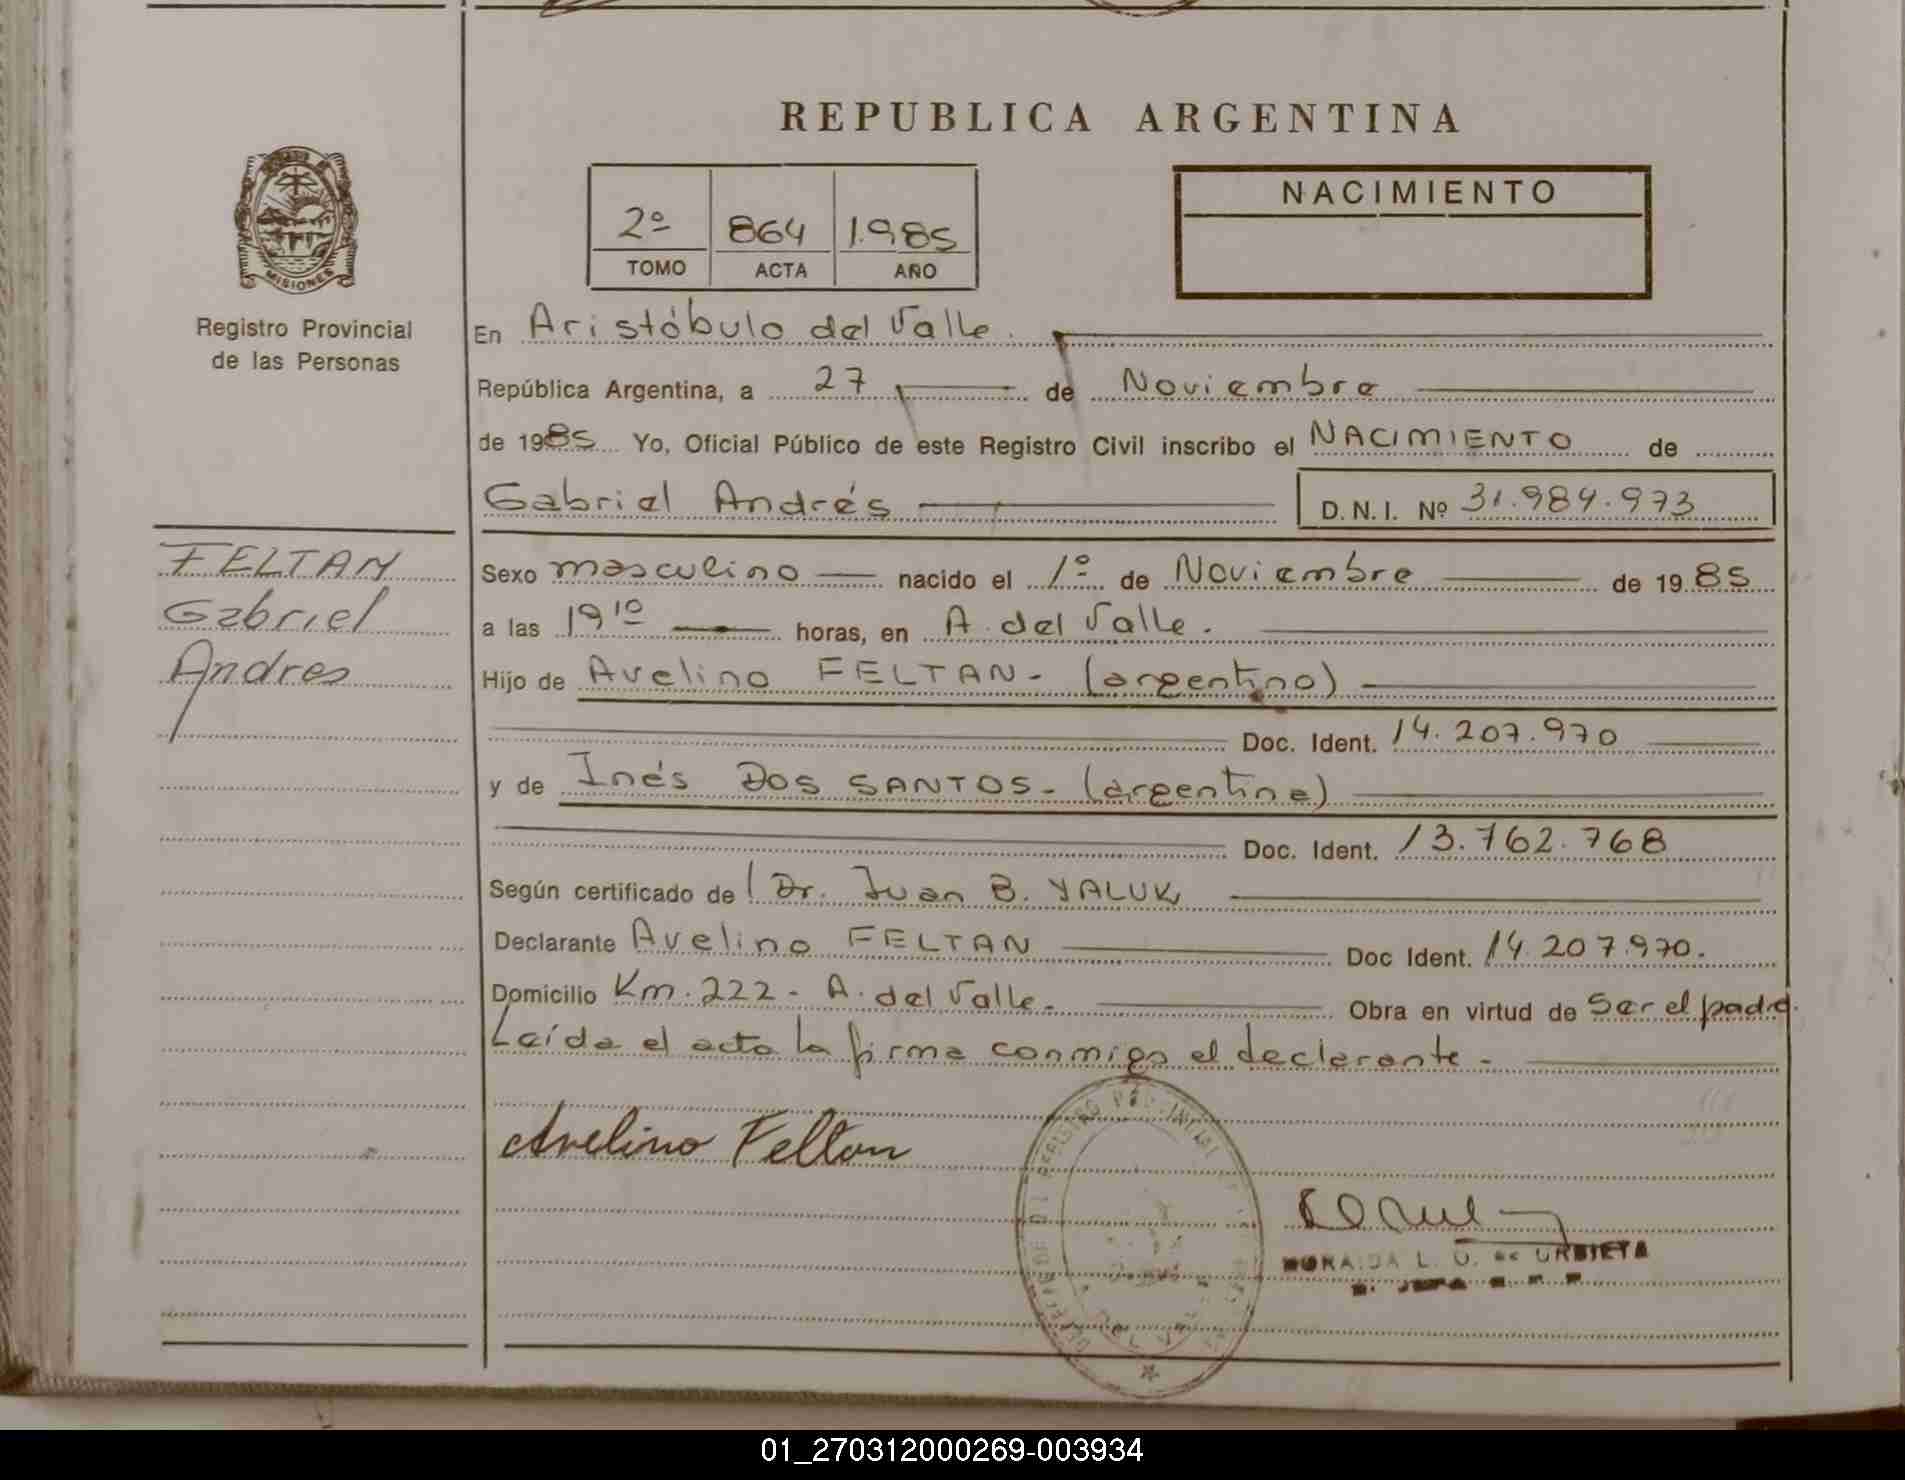 REPUBLICA ARGENTINA
MISIONES
Registro Provincial
de las Personas
2º 864 1.985
TOMO ACTA AÑO
NACIMIENTO
En Aristóbulo del Valle.
República Argentina, a 27 de Noviembre
de 1985 Yo, Oficial Público de este Registro Civil inscribo el NACIMIENTO de
Gabriel Andrés D.N.I. Nº 31.984.973
FELTAN
Gabriel
Andres
Sexo masculino nacido el 1º de Noviembre de 1985
a las 19 10 horas, en A. del Valle.
Hijo de Avelino FELTAN - (argentino)
Doc. Ident. 14.207.970
y de Inés DOS SANTOS - (argentina)
Doc. Ident. 13.762.768
Según certificado de Dr. Juan B. YALUK
Declarante Avelino FELTAN Doc Ident. 14.207.970.
Domicilio Km. 222 - A. del Valle. Obra en virtud de Ser el padre.
Leída el acta la firma conmigo el declarante -
Avelino Feltan
L. O. de URBIETA
01_270312000269-003934